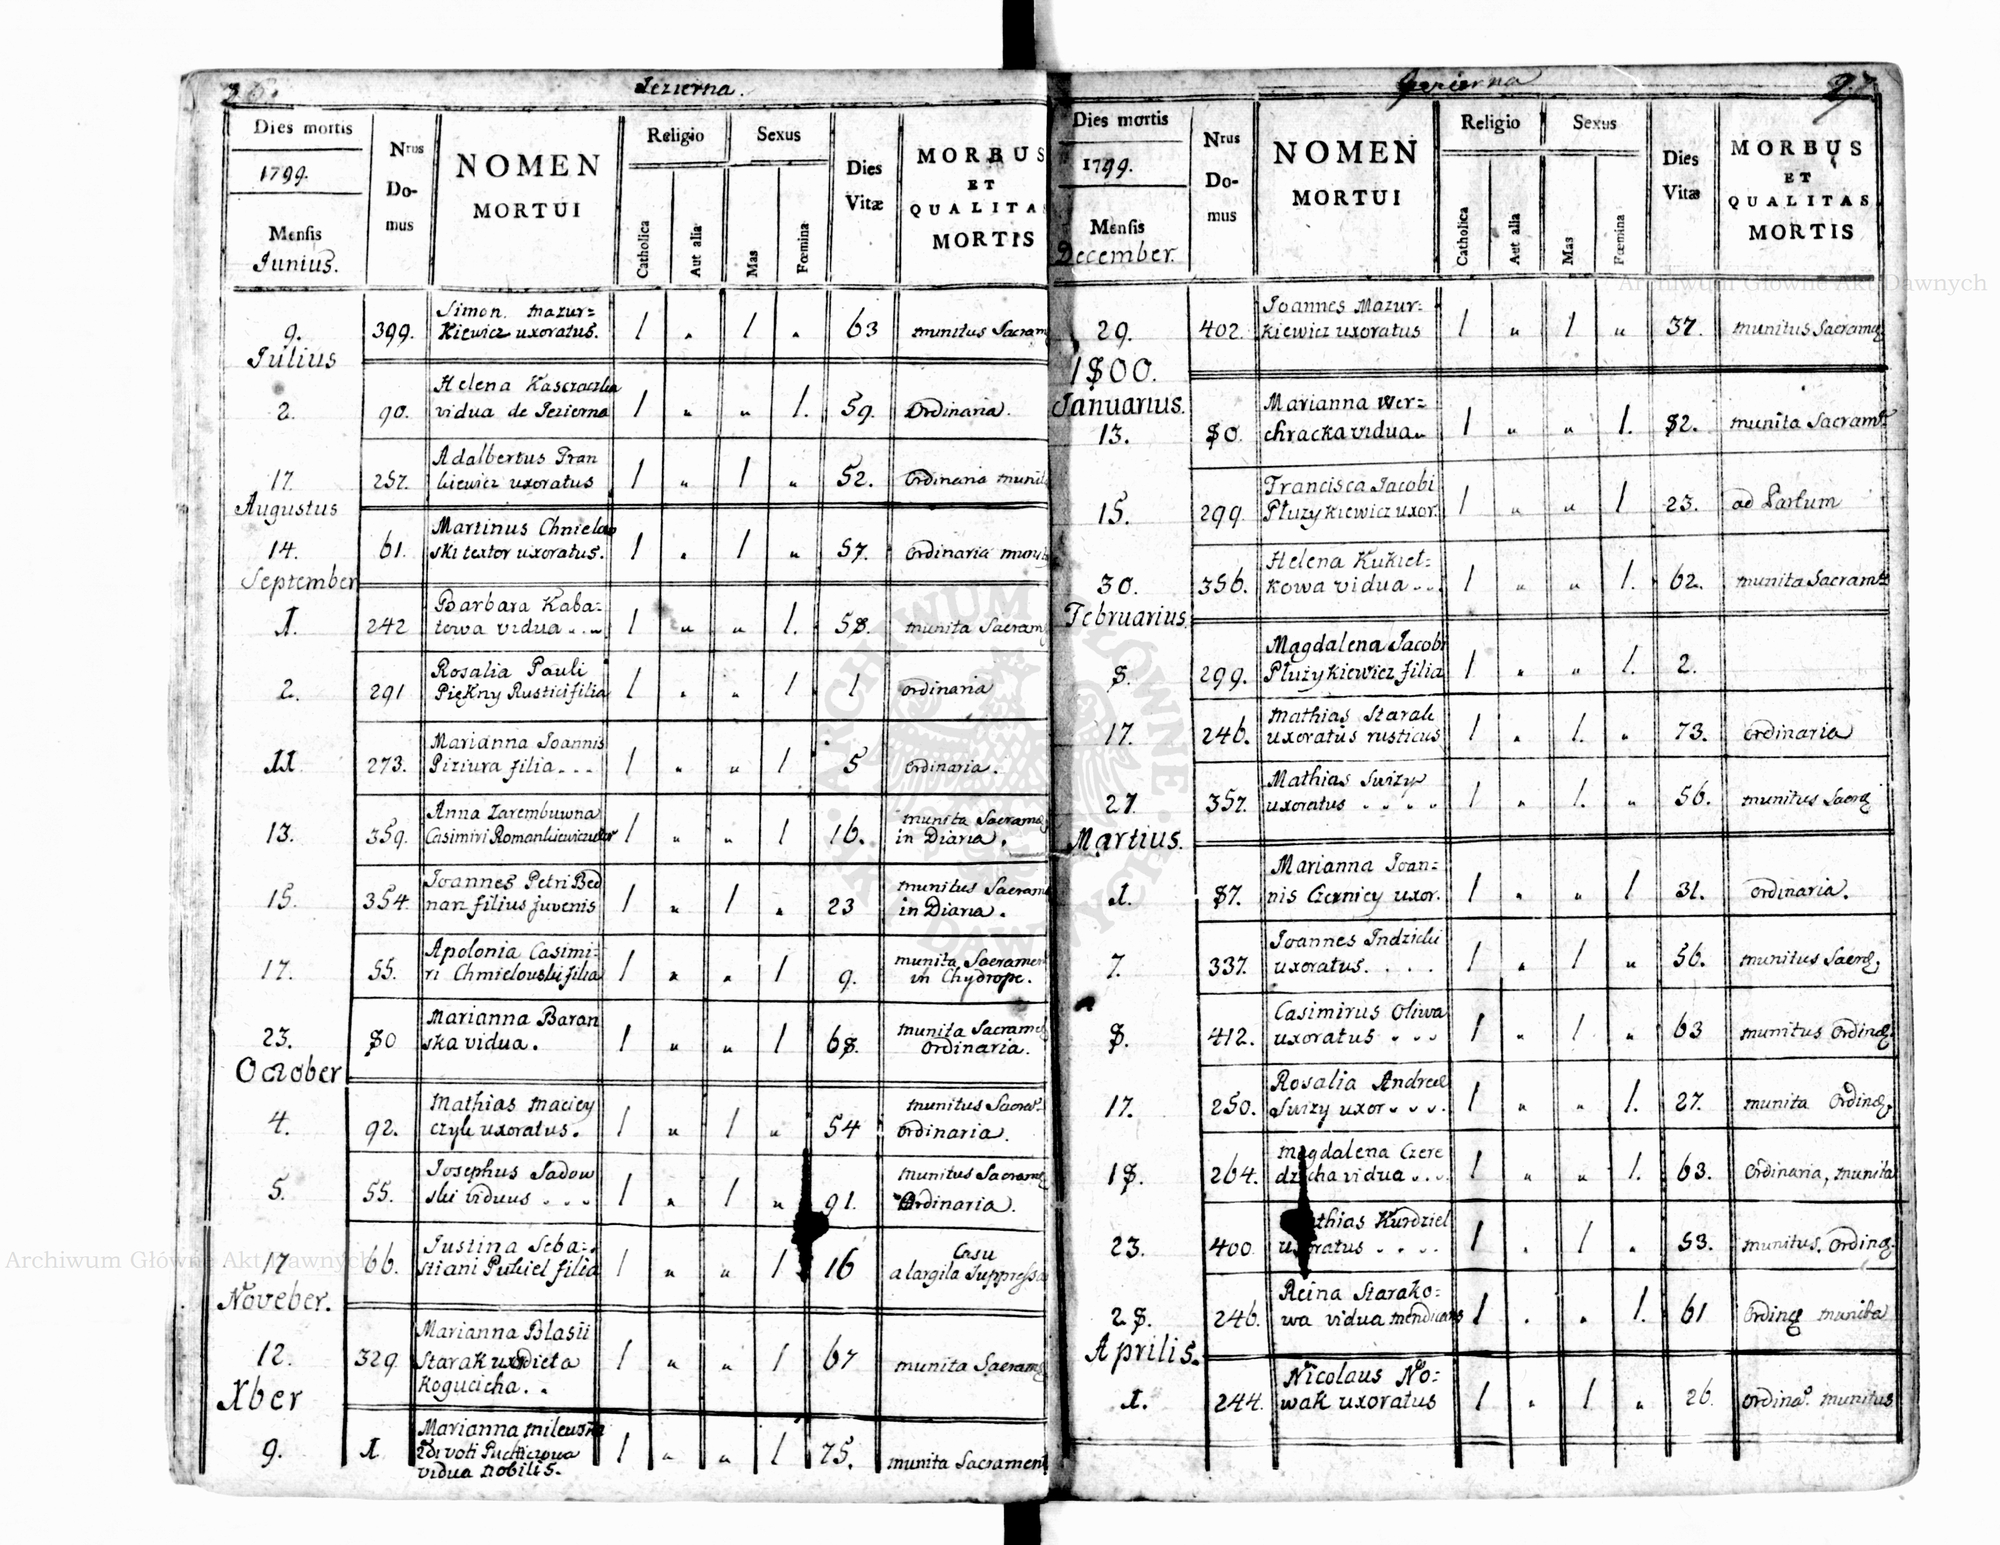 Jezierna.
Dies mortis
1799.
Mensis
Junius.
Nrus
Do-
mus
NOMEN
MORTUI
Religio
Catholica
Aut alia
Sexus
Mas
Fœmina
Dies
Vitæ
MORBUS
ET
QUALITA
MORTIS
9. 399. Simon Mazur=
kiewicz uxoratus. 1 " 1 " 63 munitus Sacram
Julius
2. 90. Helena
vidua de Jezierna 1 " " 1. 59. Ordinaria.
17. 257. Adalbertus Fran
kiewicz uxoratus 1 " 1 " 52. Ordinaria munit
Augustus
14. 61. Martinus Chmielow
ski textor uxoratus. 1 " 1 " 57. Ordinaria munit
September
1. 242 Barbara Kaba=
towa vidua 1 " " 1. 58. munita Sacram
2. 291 Rosalia Pauli
Piękny Rustici filia 1 " " 1 1 ordinaria
11 273. Marianna Joannis
Piziura filia 1 " " 1 5 ordinaria.
13. 359. Anna Zarembuwna
Casimiri Romankiewicz uxor 1 " " 1 16. munita Sacram
in Diaria.
15. 354. Joannes Petri Bed
narz filius juvenis 1 " 1 " 23 munitus Sacram
in Diaria.
17. 55. Apolonia Casimi=
ri Chmielowski filia 1 " " 1 9. munita Sacramen
in Chydrope.
23. 80 Marianna Baran
ska vidua. 1 " " 1 68. munita Sacram
Ordinaria.
October
4. 92. Mathias Maciey
czyk uxoratus. 1 " 1 " 54 munitus Sacra
ordinaria.
5. 55. Josephus Sadow
ski viduus 1 " 1 " 91. munitus Sacram
Ordinaria.
17 66. Justina Seba=
stiani Pukiel filia 1 " " 1 16 Casu
a largila Suppressa
Noveber.
12. 329 Marianna Blasii
Starak uxor dicta
Kogucicha. 1 " " 1 67 munita Sacram
Xber
9. 1 Marianna Milewska
2di voti
vidua nobilis. 1 " " 1 75. munita Sacramen
Jezierna
97
Dies mortis
1799.
Mensis
December.
Nrus
Do-
mus
NOMEN
MORTUI
Religio
Catholica
Aut alia
Sexus
Mas
Fœmina
Dies
Vitæ
MORBUS
ET
QUALITAS
MORTIS
29. 402. Joannes Mazur=
kiewicz uxoratus 1 " 1 " 37. munitus Sacram
1800.
Januarius.
13. 80. Marianna Wer=
chracka vidua 1 " " 1. 82. munita Sacramt
15. 299. Francisca Jacobi
Płuzykiewicz uxor. 1 " " 1 23. ad Partum
30. 356. Helena Kukieł=
kowa vidua 1 " " 1. 62. munita Sacramt
Februarius
8. 299. Magdalena Jacobi
Płuzykiewicz filia 1 " " 1. 2.
17. 246. Mathias Starak
uxoratus rusticus 1 " 1. " 73. ordinaria
27. 357. Mathias Suizy
uxoratus 1 " 1. " 56. munitus Sacr
Martius.
1. 87. Marianna Joan=
nis Czerniey uxor. 1 " " 1 31. ordinaria.
7. 337. Joannes Indzicki
uxoratus. 1 " 1 " 56. munitus Sacr
8. 412. Casimirus Oliwa
uxoratus 1 " 1 " 63 munitus Ordin
17. 250. Rosalia Andreæ
Suizy uxor 1 " " 1. 27. munita Ordin
18. 264. Magdalena Czere
dzicha vidua 1 " " 1. 63. Ordinaria, munita
23. 400 Mathias Kurdziel
uxoratus 1 " 1 " 53. munitus. Ordin
28. 246. Reina Starako=
wa vidua mendicans 1 " " 1. 61 Ordin munita
Aprilis.
1. 244. Nicolaus No=
wak uxoratus 1 " 1 " 26 ordina. munitus
Archiwum Główne Akt Dawnych
Archiwum Główne Akt Dawnych
ARCHIWUM GŁÓWNE AKT DAWNYCH